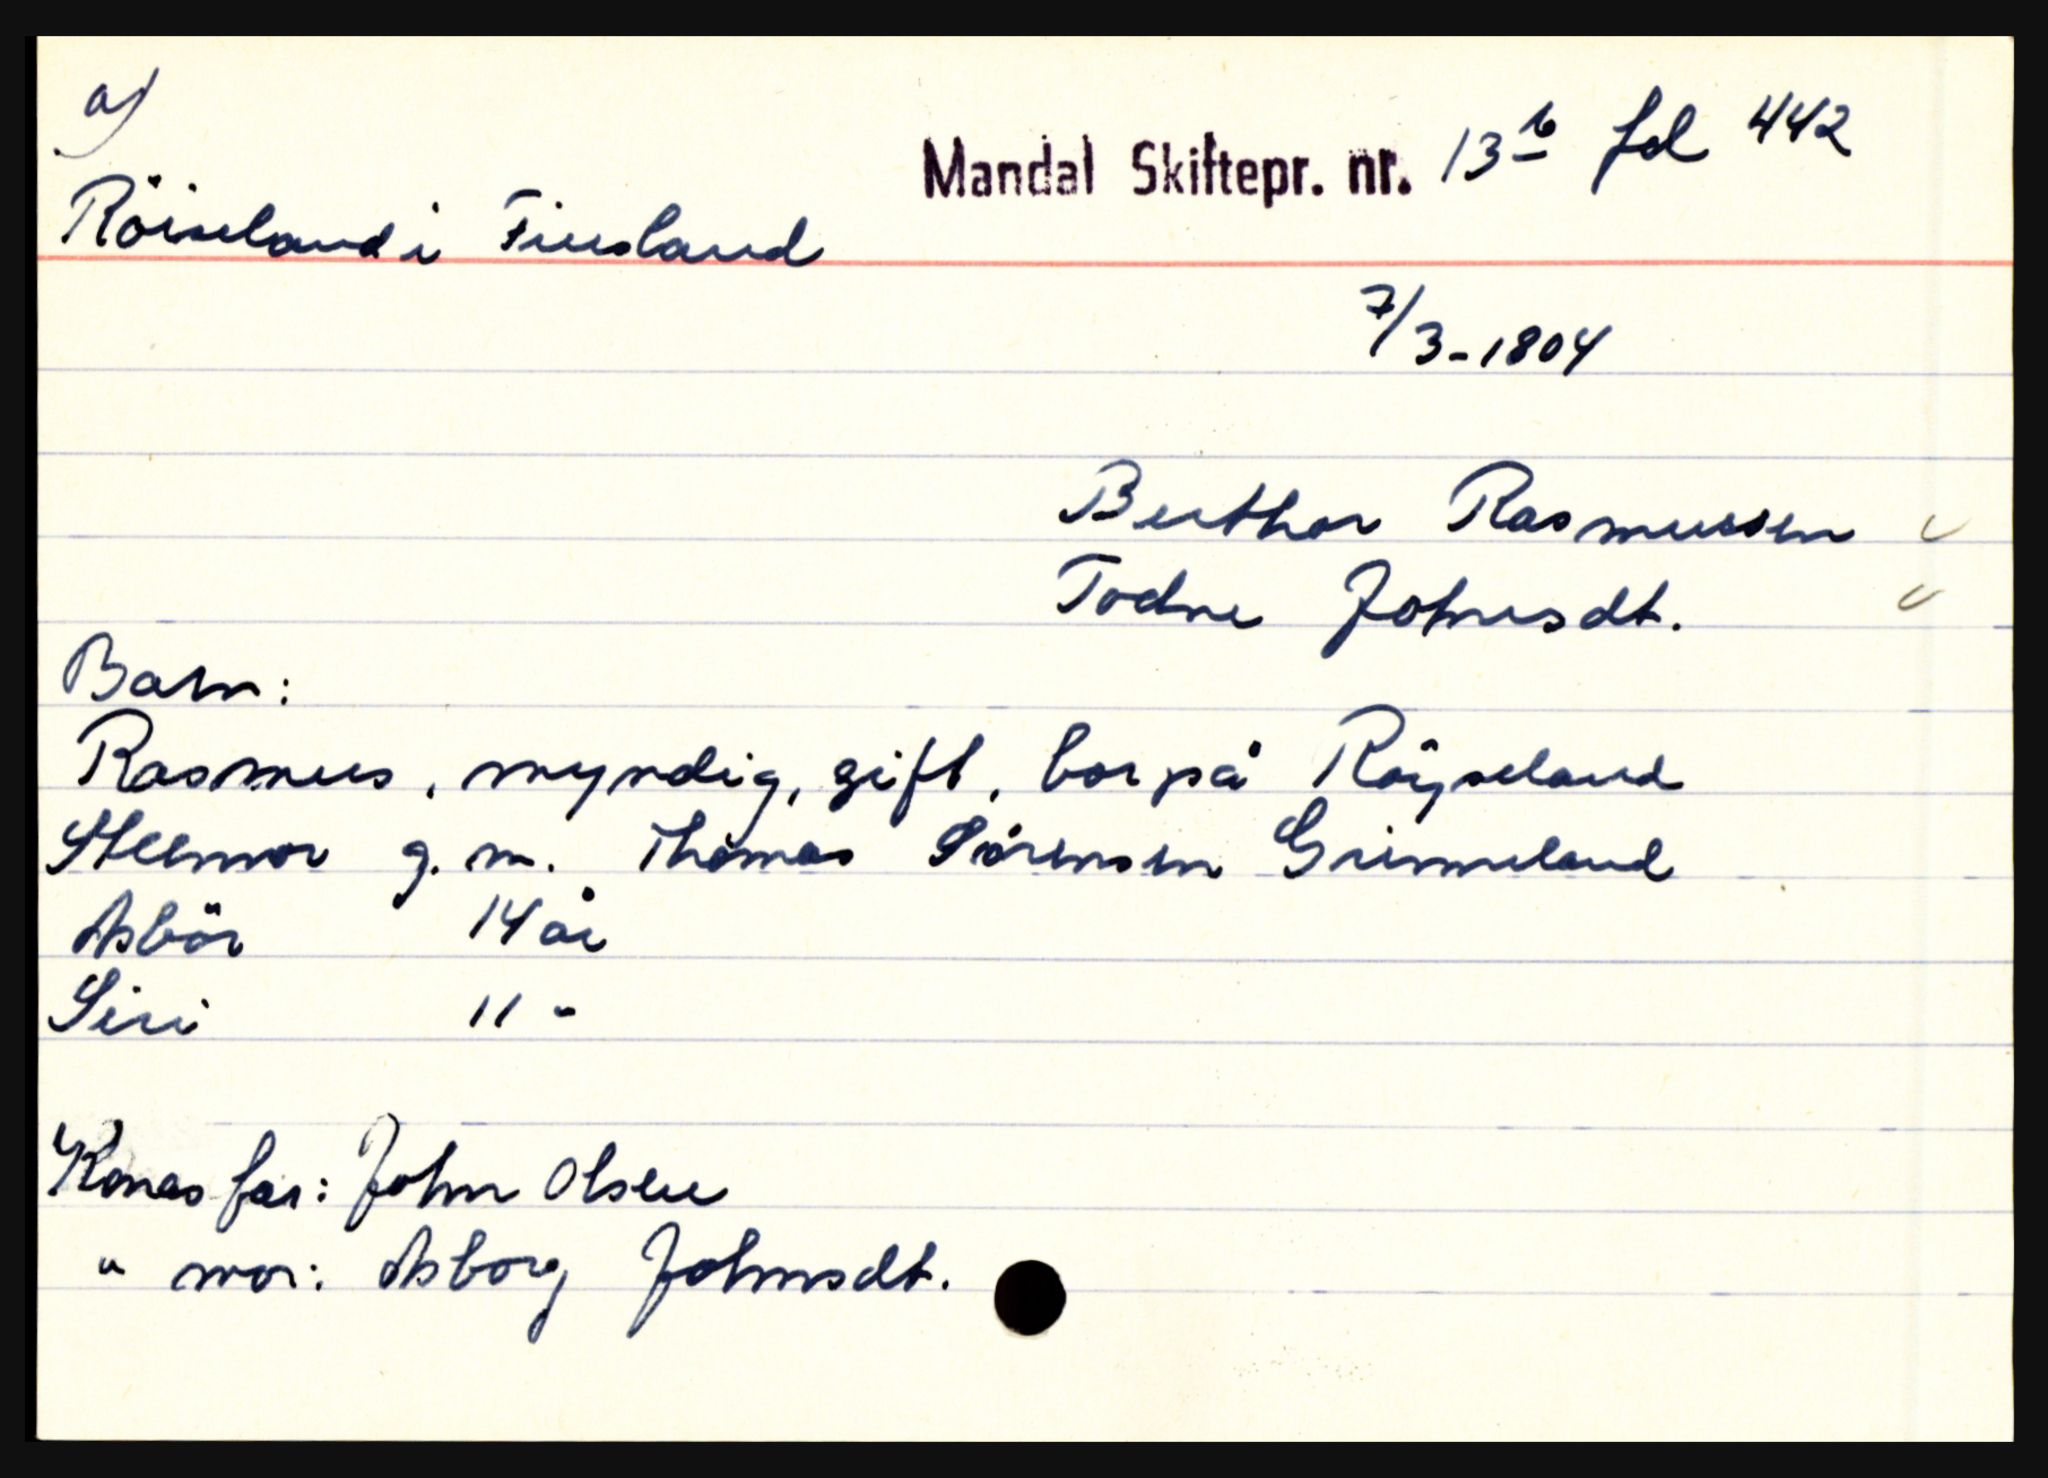 a)
Mandal Skiftepr. nr. 13b fol 442
Röiseland i Finsland
7/3-1804
Berthor Rasmussen
Todne Johnsdt.
Barn:
Rasmus, myndig, gift, bor på Röyseland
Steenvor g. m. Thomas Sörensen Grimmeland
Asbör 14 år
Siri 11 "
Konas far: John Olsen
" mor: Asborg Johnsdt.